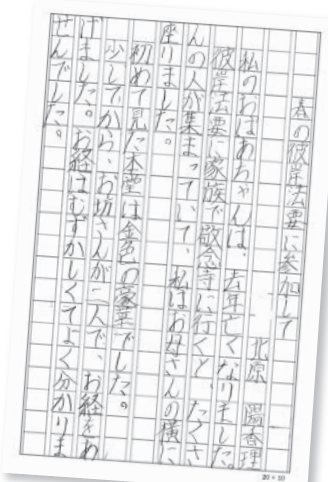 春の彼岸法要に参加して
北原 陽香理
私のおばあちゃんは、去年亡くなりました。
彼岸法要に家族で敬念寺に行くと、たくさ
んの人が集まっていて、私はお母さんの横に
座りました。
初めて見た本堂は金色の豪華でした。
少してから、お坊さんが二人で、お経をあ
げました。お経はむずかしくてよく分かりま
せんでした。
20×10